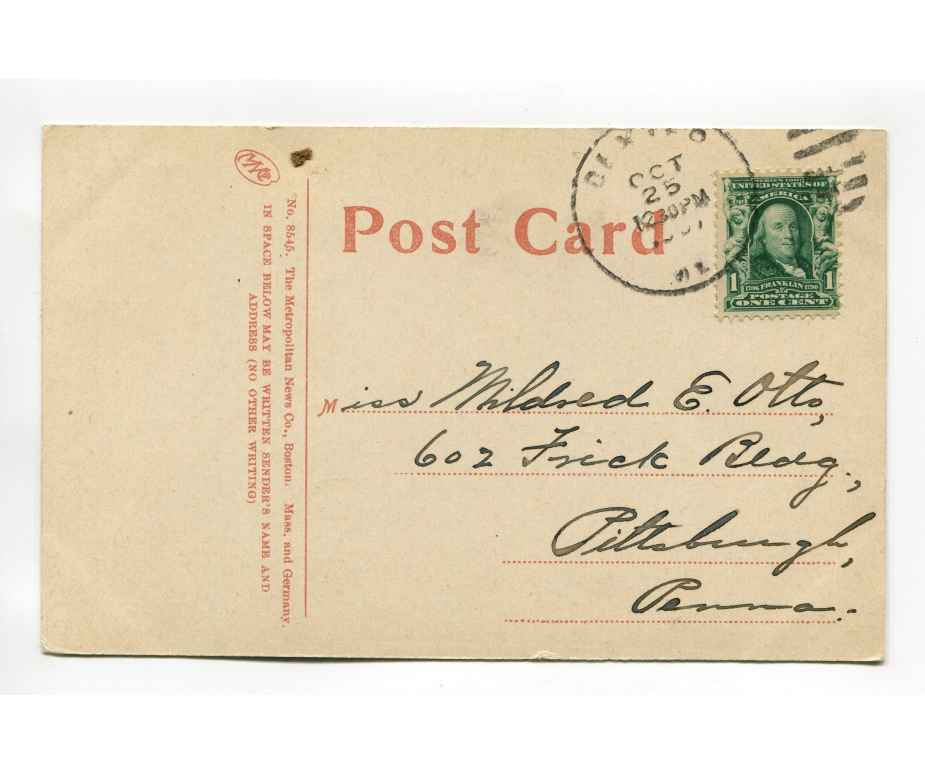 OCT
25
12 30 PM
SERIES 1902
UNITED STATES OF
AMERICA
1 1
FRANKLIN
POSTAGE
ONE CENT
Post Card
No. 8545. The Metropolitan News Co., Boston. Mass. and Germany.
IN SPACE BELOW MAY BE WRITTEN SENDER'S NAME AND
ADDRESS (NO OTHER WRITING)
Miss Mildred E. Otto,
602 Frick Bldg.,
Pittsburgh,
Penna.